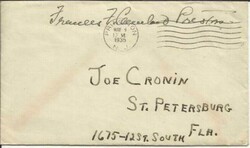 Frances Cleveland Preston
1935
JOE CRONIN
ST. PETERSBURG
FLA.
1675-12 ST. SOUTH